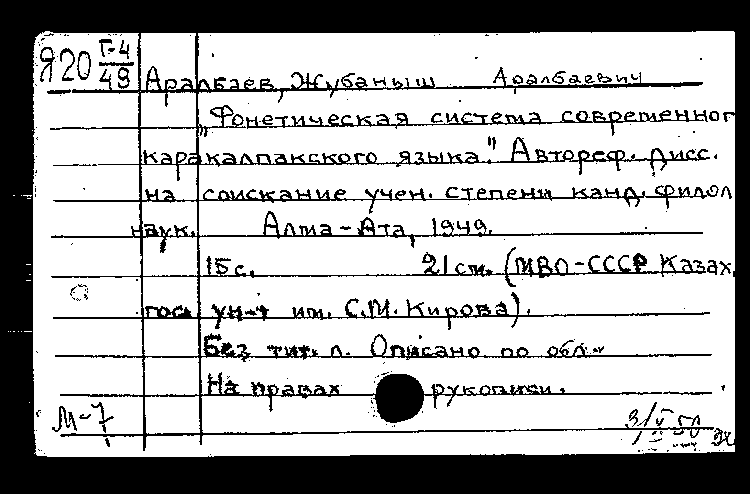 Я20 Г-4
49
Аралбаев, Жубаныш Аралбаевич
"Фонетическая система современног
каракалпакского языка." Автореф. дисс.
на соискание учен. степени канд. филол
наук. Алма-Ата, 1949.
15 с. 21 см. (МВО-СССР Казах.
гос. ун-т им. С.М. Кирова).
Без тит. л. Описано по обл.
На правах рукописи.
М-7
3/V 50